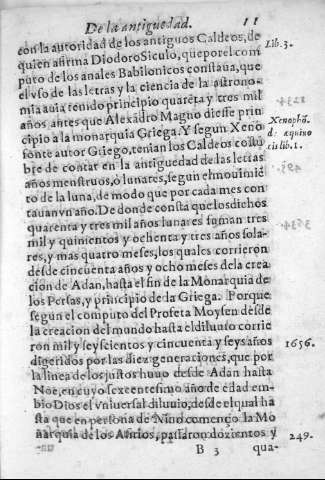 De la antiguedad. 11
con la autoridad de los antiguos Caldeos, de
quien afirma Diodoro Siculo, que por el com
puto de los anales Babilonicos constaua, que
el vso de las letras y la ciencia de la astrono-
mia auia tenido principio quarēta y tres mil
años antes que Alexādro Magno diesse prin
cipio a la monarquia Griega. Y segun Xeno
fonte autor Griego, tenian los Caldeos costū
bre de contar en la antiguedad de las letras
años menstruos, ò lunares, segun el mouimiē
to de la luna, de modo que por cada mes con
tauan vn año. De donde consta que los dichos
quarenta y tres mil años lunares suman tres
mil y quinientos y ochenta y tres años sola-
res, y mas quatro meses, los quales corrieron
desde cincuenta años y ocho meses de la crea
cion de Adan, hasta el fin de la Monarquia de
los Persas, y principio de la Griega. Porque
segun el computo del Profeta Moysen desde
la creacion del mundo hasta el diluuio corrie
ron mil y seyscientos y cincuenta y seys años
digeridos por las diez generaciones, que por
la linea de los justos huuo desde Adan hasta
Noe, en cuyo sexcentesimo año de edad em-
bio Dios el vniuersal diluuio, desde el qual ha
sta que en persona de Nino començo la Mo
narquia de los Asirios, passaron dozientos y
B 3 qua-
Lib. 3.
Xenophō.
d: æquiuo
cis lib. 1.
1656.
249.